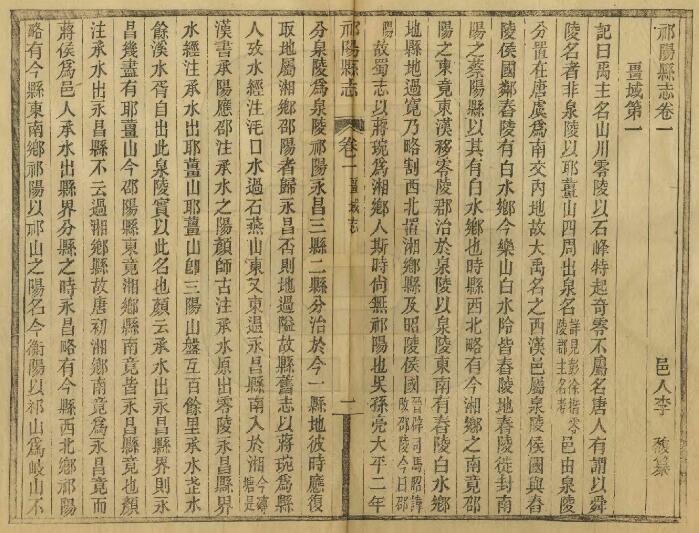 祁陽縣志卷一
邑人李馥纂
疆域第一
記曰禹主名山川零陵以石峰特起奇零不屬名唐人有謂以舜
陵名者非泉陵以耶薑山四周出泉名詳見彭徐楷零陵郡主名考邑由泉陵
分置在唐虞爲南交內地故大禹名之西漢邑屬泉陵侯國與舂
陵侯國鄰舂陵有白水鄉今欒山白水阾皆舂陵地舂陵徙封南
陽之蔡陽縣以其有白水鄉也時縣西北略有今湘鄉之南竟邵
陽之東竟東漢移零陵郡治於泉陵以泉陵東南有舂陵白水鄉
地縣地過寬乃略割西北置湘鄉縣及昭陵侯國晉辟司馬昭諱改邵陵今日邵
陽故蜀志以蔣琬爲湘鄉人斯時尚無祁陽也吳孫亮太平二年
祁陽縣志
卷一疆域志
一
分泉陵爲泉陵祁陽永昌三縣二縣分治於今一縣地彼時應復
取地屬湘鄉邵陽者歸永昌否則地過隘故縣舊志以蔣琬爲縣
人攷水經注汦口水過石燕山東又東過永昌縣南入於湘今
漢書承陽應邵注承水之陽顏師古注承水原出零陵永昌縣界
水經注承水出耶薑山耶薑山卽三陽山盤互百餘里承水
餘溪水胥自出此泉陵實以此名也顏云承水出永昌縣界則永
昌幾盡有耶薑山今邵陽縣東竟湘鄉縣南竟皆永昌縣竟也顏
注承水出永昌縣不云過湘鄉縣故唐初湘鄉南竟爲永昌竟而
蔣侯爲邑人承水出縣界分縣之時永昌略有今縣西北鄉祁陽
略有今縣東南鄉祁陽以祁山之陽名今衡陽以祁山爲岐山不